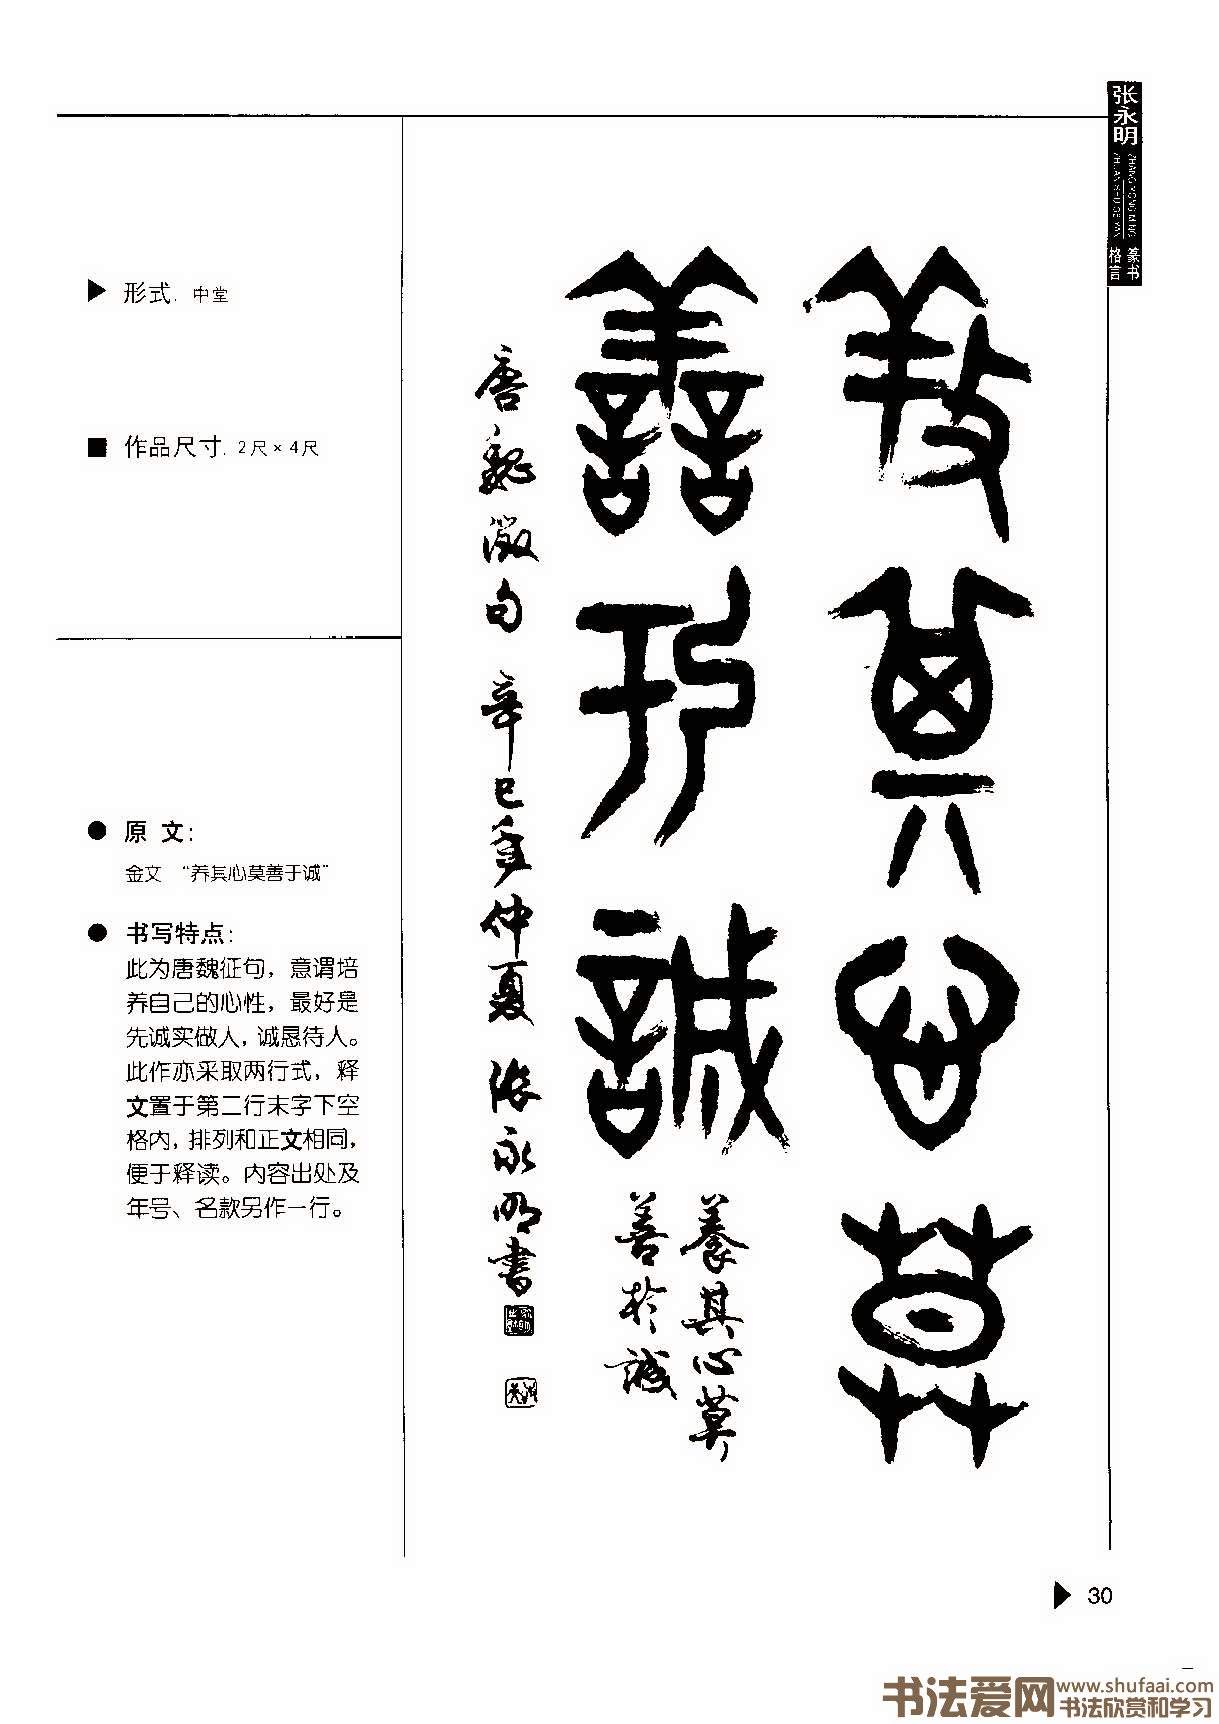 张永明
ZHANG YONG MING
ZHUAN SHU GE YAN
篆书
格言
▶ 形式. 中堂
■ 作品尺寸. 2尺×4尺
● 原 文:
金文 “养其心莫善于诚”
● 书写特点:
此为唐魏征句，意谓培
养自己的心性，最好是
先诚实做人，诚恳待人。
此作亦采取两行式，释
文置于第二行末字下空
格内，排列和正文相同，
便于释读。内容出处及
年号、名款另作一行。
養其心莫
善于誠
養其心莫
善於誠
唐魏徵句 辛巳年仲夏 張永明書
▶ 30
书法爱网
www.shufaai.com
书法欣赏和学习